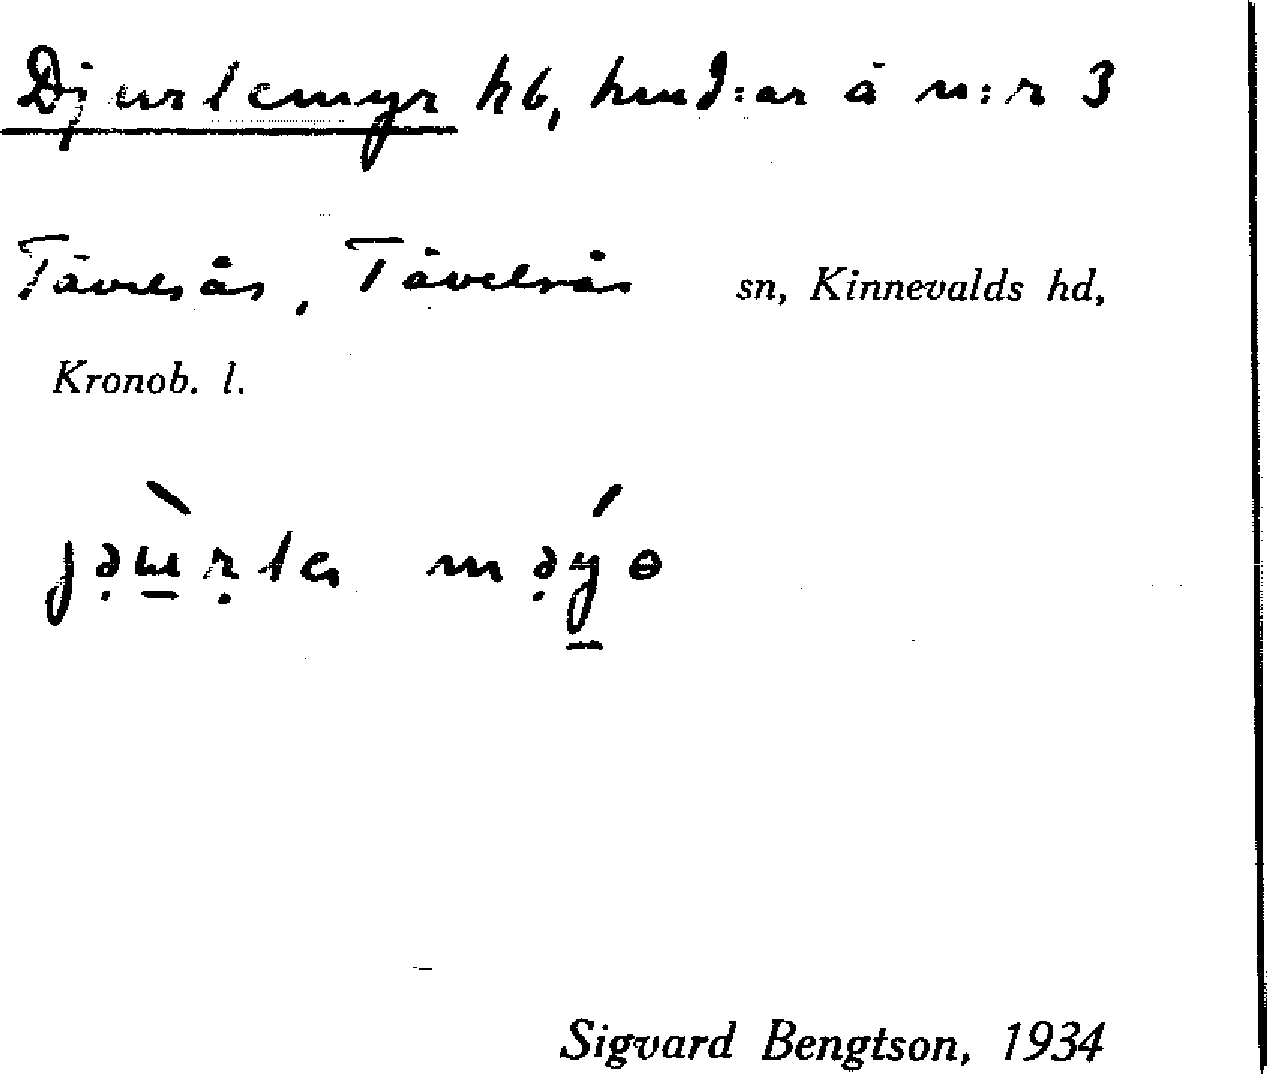 Djurlemyr hb, hmd:ar å n:r 3
Tävelsås, Tävelsås sn, Kinnevalds hd,
Kronob. l.
Sigvard Bengtson, 1934